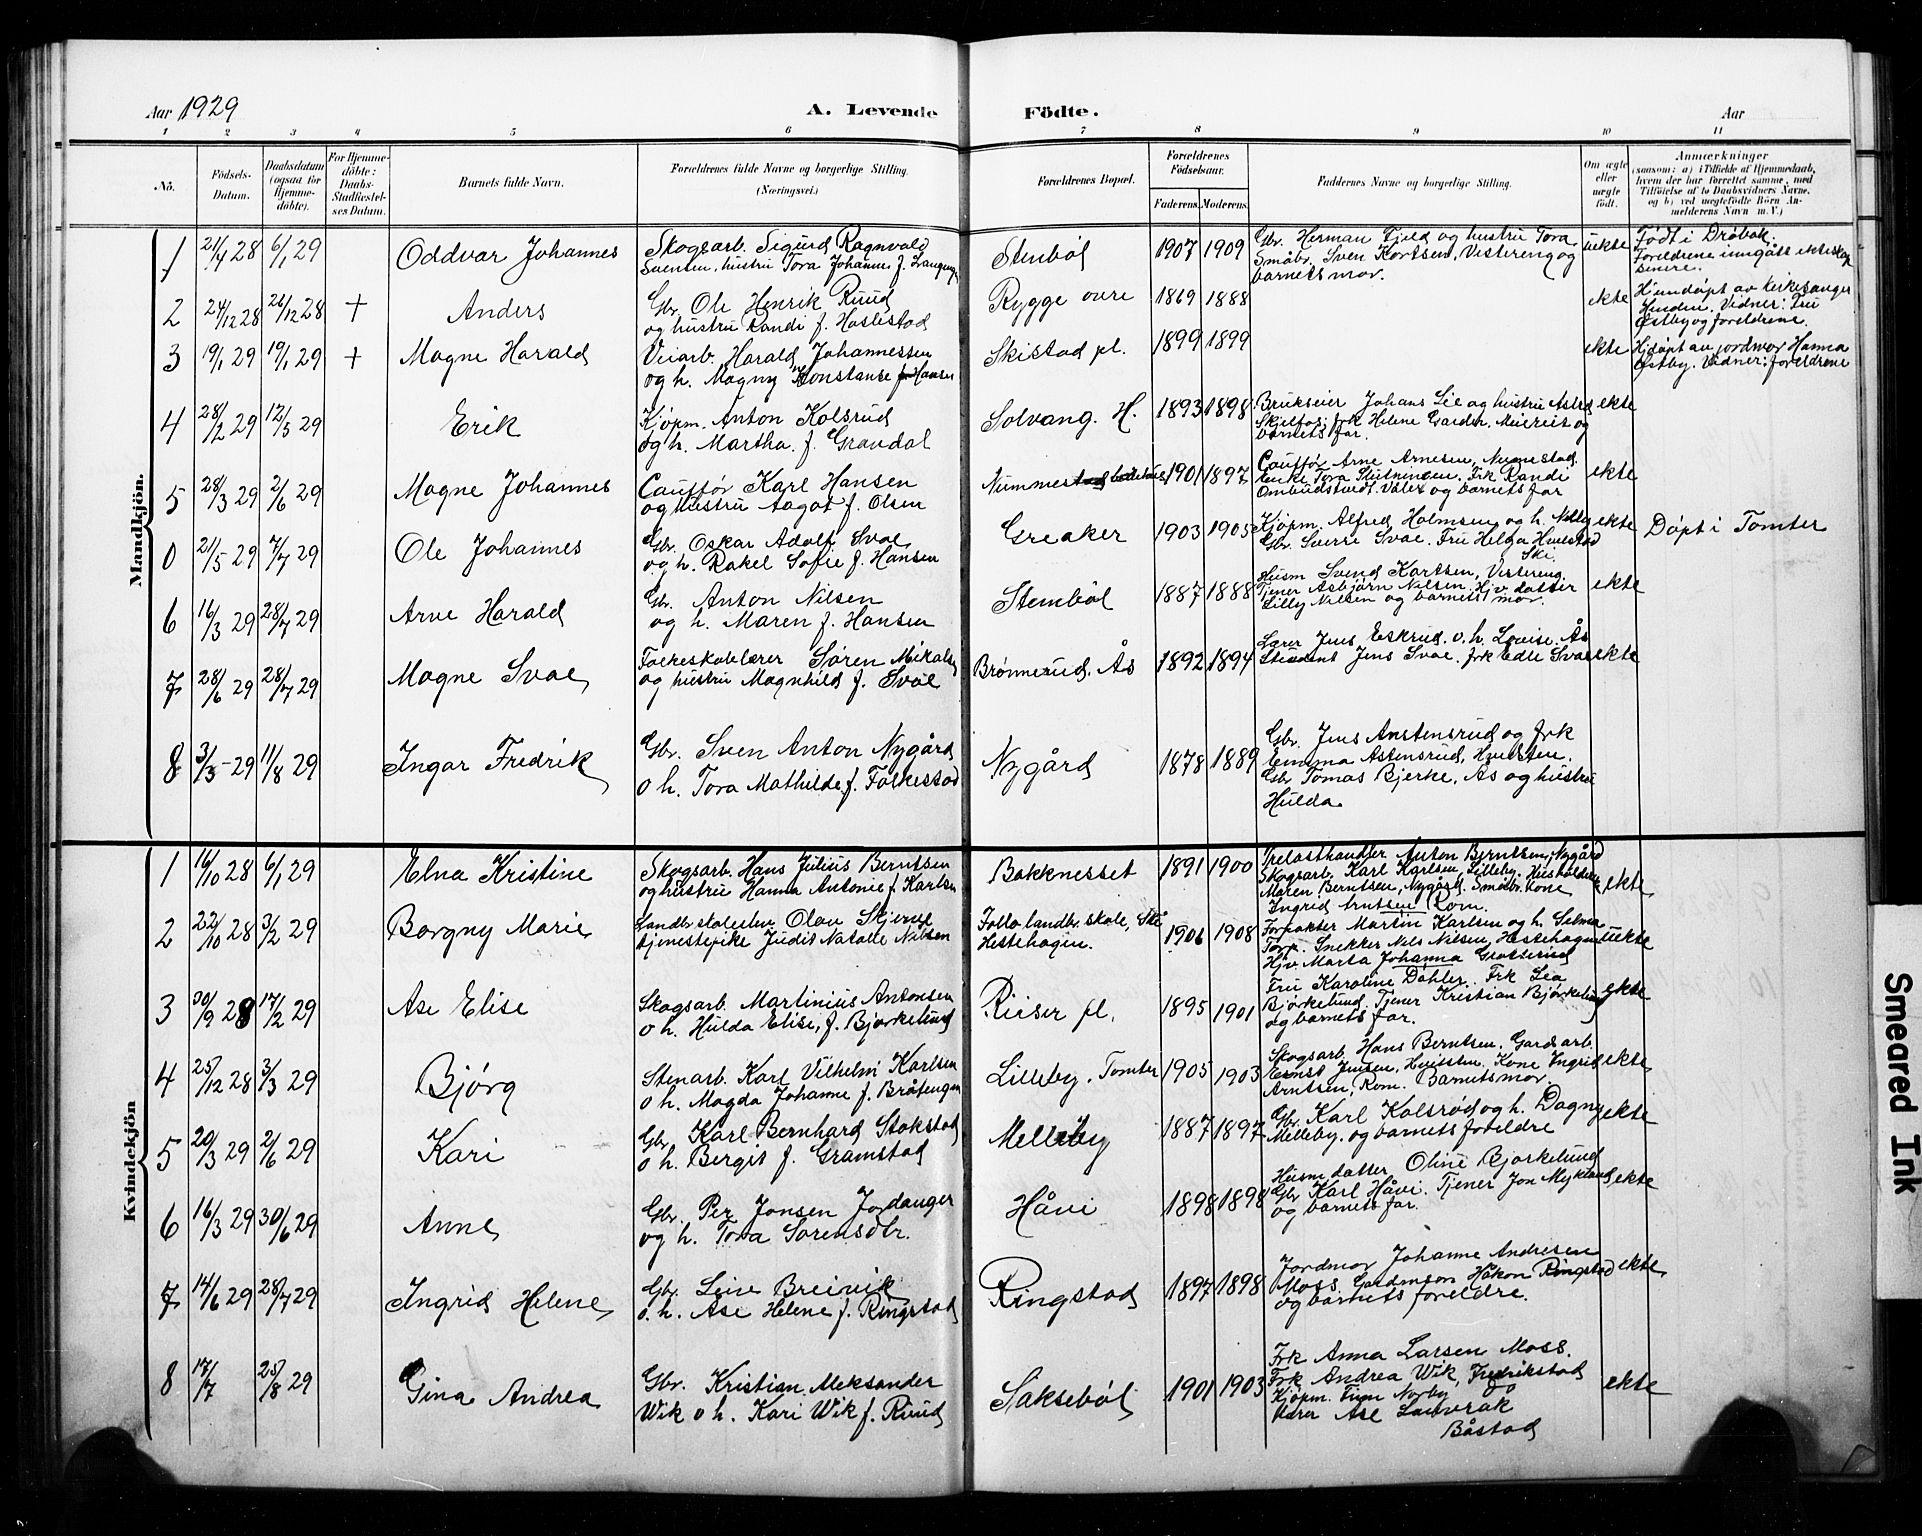 Aar 1929
A. Levende Födte.
Aar
1 2 3 4 5 6 7 8 9 10 11
Nö.
Födsels-Datum.
Daabsdatum (ogsaa for Hjemme-döbte).
For Hjemme-döbte: Daabs-Stadfæstel-ses Datum.
Barnets fulde Navn.
Forældrenes fulde Navne og borgerlige Stilling. (Næringsvei.)
Forældrenes Bopæl.
Forældrenes Födselsaar.
Faderens. Moderens.
Faddernes Navne og borgerlige Stilling.
Om ægte eller uægte födt.
Anmærkninger
(saasom: a) i Tilfælde af Hjemmedaab, hvem der har forrettet samme, med Tilföielse af to Daabsvidners Navne, og b) ved uægtefödte Börn An-melderens Navn m. V.)
Mandkjön.
1 21/4 28 6/1 29 Oddvar Johannes
Skogsarb. Sigurd Ragnvald
Svensen, hustru Tora Johanne f.
Stenbøl 1907 1909
Gbr. Herman Fjeld og hustru Tora
Småbr. Sven Kortsen, Vistereng og
barnets mor.
uekte
Født i Drøbak.
Foreldrene inngått ekteskap
senere.
2 24/12 28 26/12 28 + Anders
Gbr. Ole Henrik Ruud
og hustru Randi f. Haslestad
Rygge øvre 1869 1888 ekte
Hjemdøpt av kirkesanger
Vidner: Fru
Østby og foreldrene.
3 19/1 29 19/1 29 + Magne Harald
Veiarb. Harald Johannessen
og h. Magny Konstanse f. Hansen
Skistad pl. 1899 1899 ekte
Hj.døpt av jordmor Hanna
Østby. Vidner: foreldrene
4 28/2 29 12/5 29 Erik
Kjøpm. Anton Kolsrud
og h. Martha. f. Gravdal
Solvang. H. 1893 1898
Brukseier Johans Lie og hustru Astrid
frk Helene Garder. og
barnets far.
ekte
5 28/3 29 2/6 29 Magne Johannes
Cauffør Karl Hansen
og hustru Aagot f. Olsen
1901 1897
Cauffør Arne Arnesen,
Enke Tora Frk Randi
Ombudstvedt, Våler og barnets far
ekte
0 21/5 29 7/7 29 Ole Johannes
Gbr. Oskar Adolf Svae
og h. Rakel Sofie f. Hansen
Greaker 1903 1905
Kjøpm. Alfred Holmsen og h. Nelly
Gbr. Sverre Svae. Fru Helga
Ski
ekte Døpt i Tomter
6 16/3 29 28/7 29 Arve Harald
Gbr. Anton Nilsen
og h. Maren f. Hansen
Stenbøl 1887 1888
Husm Svend Kortsen, Vistereng
Tjener Asbjørn Nilsen, Hjv. datter
Lilly Nilsen og barnets mor.
ekte
7 28/6 29 28/7 29 Magne Svae
Folkeskolelærer Søren Mikalsen
og hustru Magnhild f. Svae
Brønnerud. Ås 1892 1894
Lærer Jens Eskrud. o. h. Lovise. Ås
Student Jens Svae. frk Edle Svae
ekte
8 31/3 - 29 11/8 29 Ingar Fredrik
Gbr. Sven Anton Nygård
o h. Tora Mathilde. f. Falkestad
Nygård 1878 1889
Gbr. Jens Anstensrud og frk
Emma Astensrud, Hvidsten.
Gbr Tomas Bjerke, Ås og hustru
Hulda.
Kvindekjön
1 16/10 28 6/1 29 Elna Kristine
Skogsarb. Hans Julius Berntsen
og hustru Hanna Antonie f. Karlsen
Bakknesset 1891 1900
Trelasthandler Anton Berntsen, Nygård
Skogsarb. Karl Karlsen, Lilleby.
Maren Berntsen, Nygård. Småbr. kone
Ingrid Arntsen Rom.
ekte
2 22/10 28 3/2 29 Borgny Marie
Landbr. skoleelev Olav
tjenestepike Judit Natalie Nilsen
Follo landbr. skole, Ski
Hestehagen.
1906 1908
Forpakter Martin Karlsen og h. Selma
Torp. Snekker Nils Nilsen, Hestehagen
Hjv. Marta Johanna Grøtterud
uekte
3 30/9 28 17/2 29 Åse Elise
Skogsarb. Martinius Antonsen
o h. Hulda Elise, f. Bjørkelund
Riiser pl. 1895 1901
Fru Karoline Døhler. Frk Lea
Bjørkelund. Tjener Kristian Bjørkelund
og barnets far.
ekte
4 25/12 28 3/3 29 Bjørg
Stenarb. Karl Vilhelm Karlsen
o h. Magda Johanne f. Bråtengen
Lilleby, Tomter 1905 1903
Skogsarb. Hans Berntsen, Gardsarb.
Ernst Jensen, Hvitsten, Kone Ingrid
Arntsen, Rom. Barnets mor.
ekte
5 20/3 29 2/6 29 Kari
Gbr. Karl Bernhard Stokstad
o h. Bergit f. Gramstad
Melleby 1887 1897
Gbr. Karl Kolsrød og h. Dagny
Melleby. og barnets foreldre
ekte
6 16/3 29 30/6 29 Anne
Gbr. Per Jonsen Jordanger
og h. Tora Sørensdtr.
Håvi 1898 1898
Husm datter Oline Bjørkelund
Gbr Karl Håvi. Tjener Jon Mykland
og barnets far.
ekte
7 14/6 29 28/7 29 Ingrid Helene
Gbr. Leive Breivik
o. h. Åse Helene f. Ringstad
Ringstad 1897 1898
Jordmor Johanne Andresen
Moss. Gardmann Håkon Ringstad
og barnets foreldre.
ekte
8 17/7 25/8 29 Gina Andrea
Gbr. Kristian Aleksander
Wik o h. Kari Wik f. Ruud
Saksebøl 1901 1903
Frk Anna Larsen Moss.
Frk Andrea Wik, Fredrikstad
Kjøpm. Finn Norby
Lærer Åse
Båstad
ekte
Smeared Ink